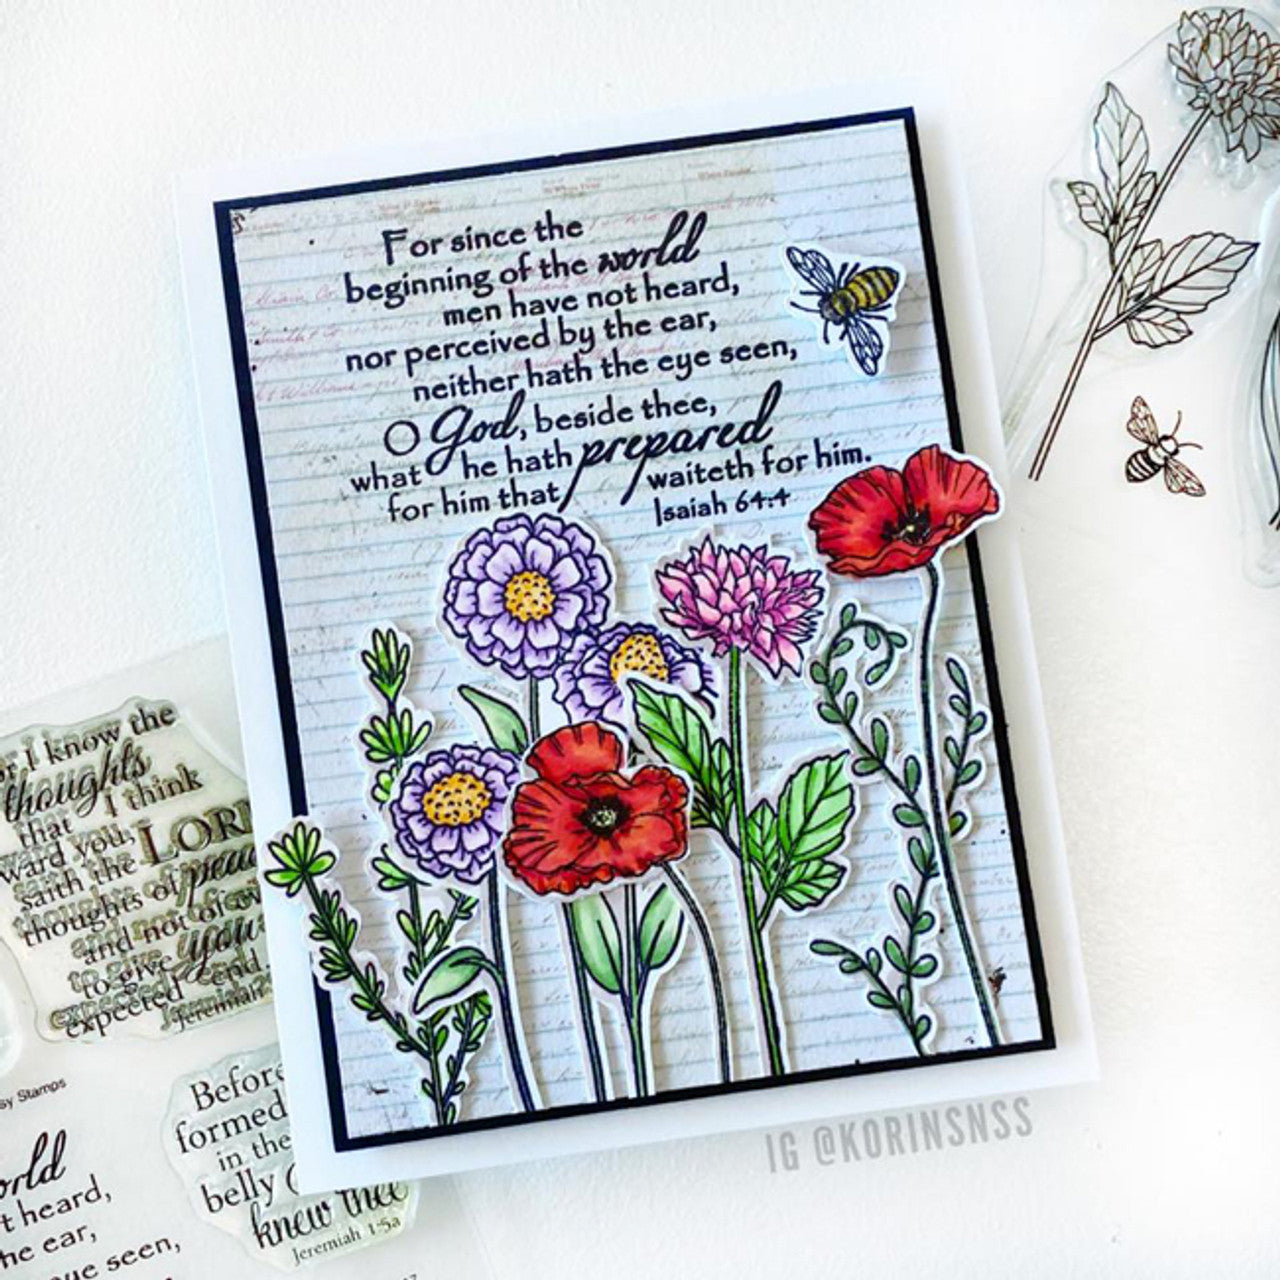 For since the
beginning of the world
men have not heard,
nor perceived by the ear,
neither hath the eye seen,
O God, beside thee,
what he hath prepared
for him that waiteth for him.
Isaiah 64:4
IG @KORINSNSS
r I know the
thoughts
that I think
ward you,
saith the LOR
thoughts of peac
and not of ev
to give you
expected end.
Jeremiah
sy Stamps
Before
formed
in the
belly
knew thee
Jeremiah 1:5a
orld
t heard,
he ear,
eye seen,